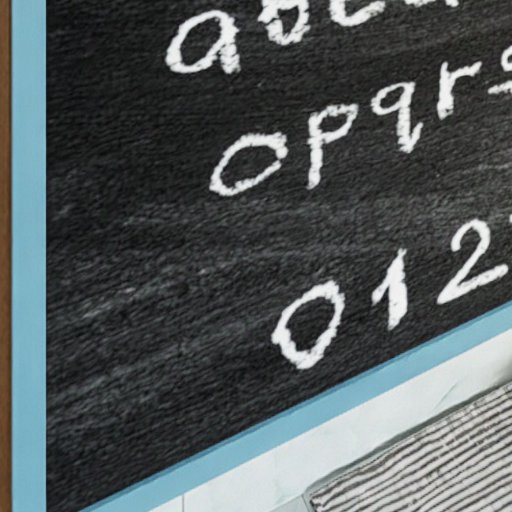 abcd
opqrs
012